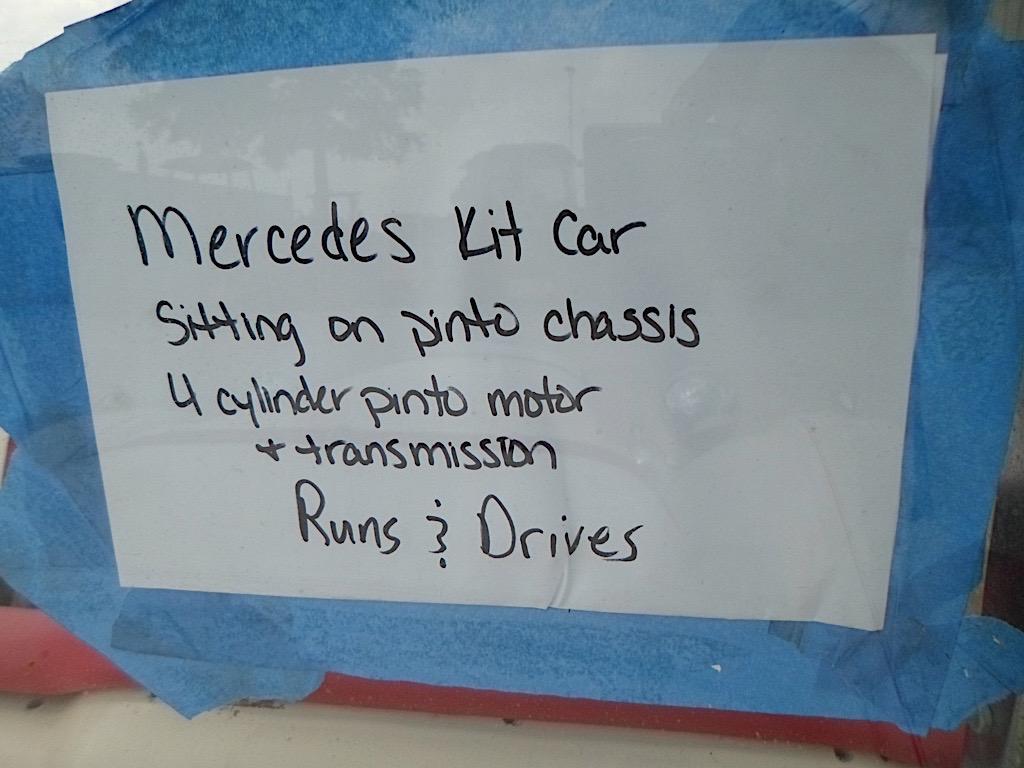 Mercedes Kit Car
Sitting on pinto chassis
4 cylinder pinto motor
+ transmission
Runs & Drives